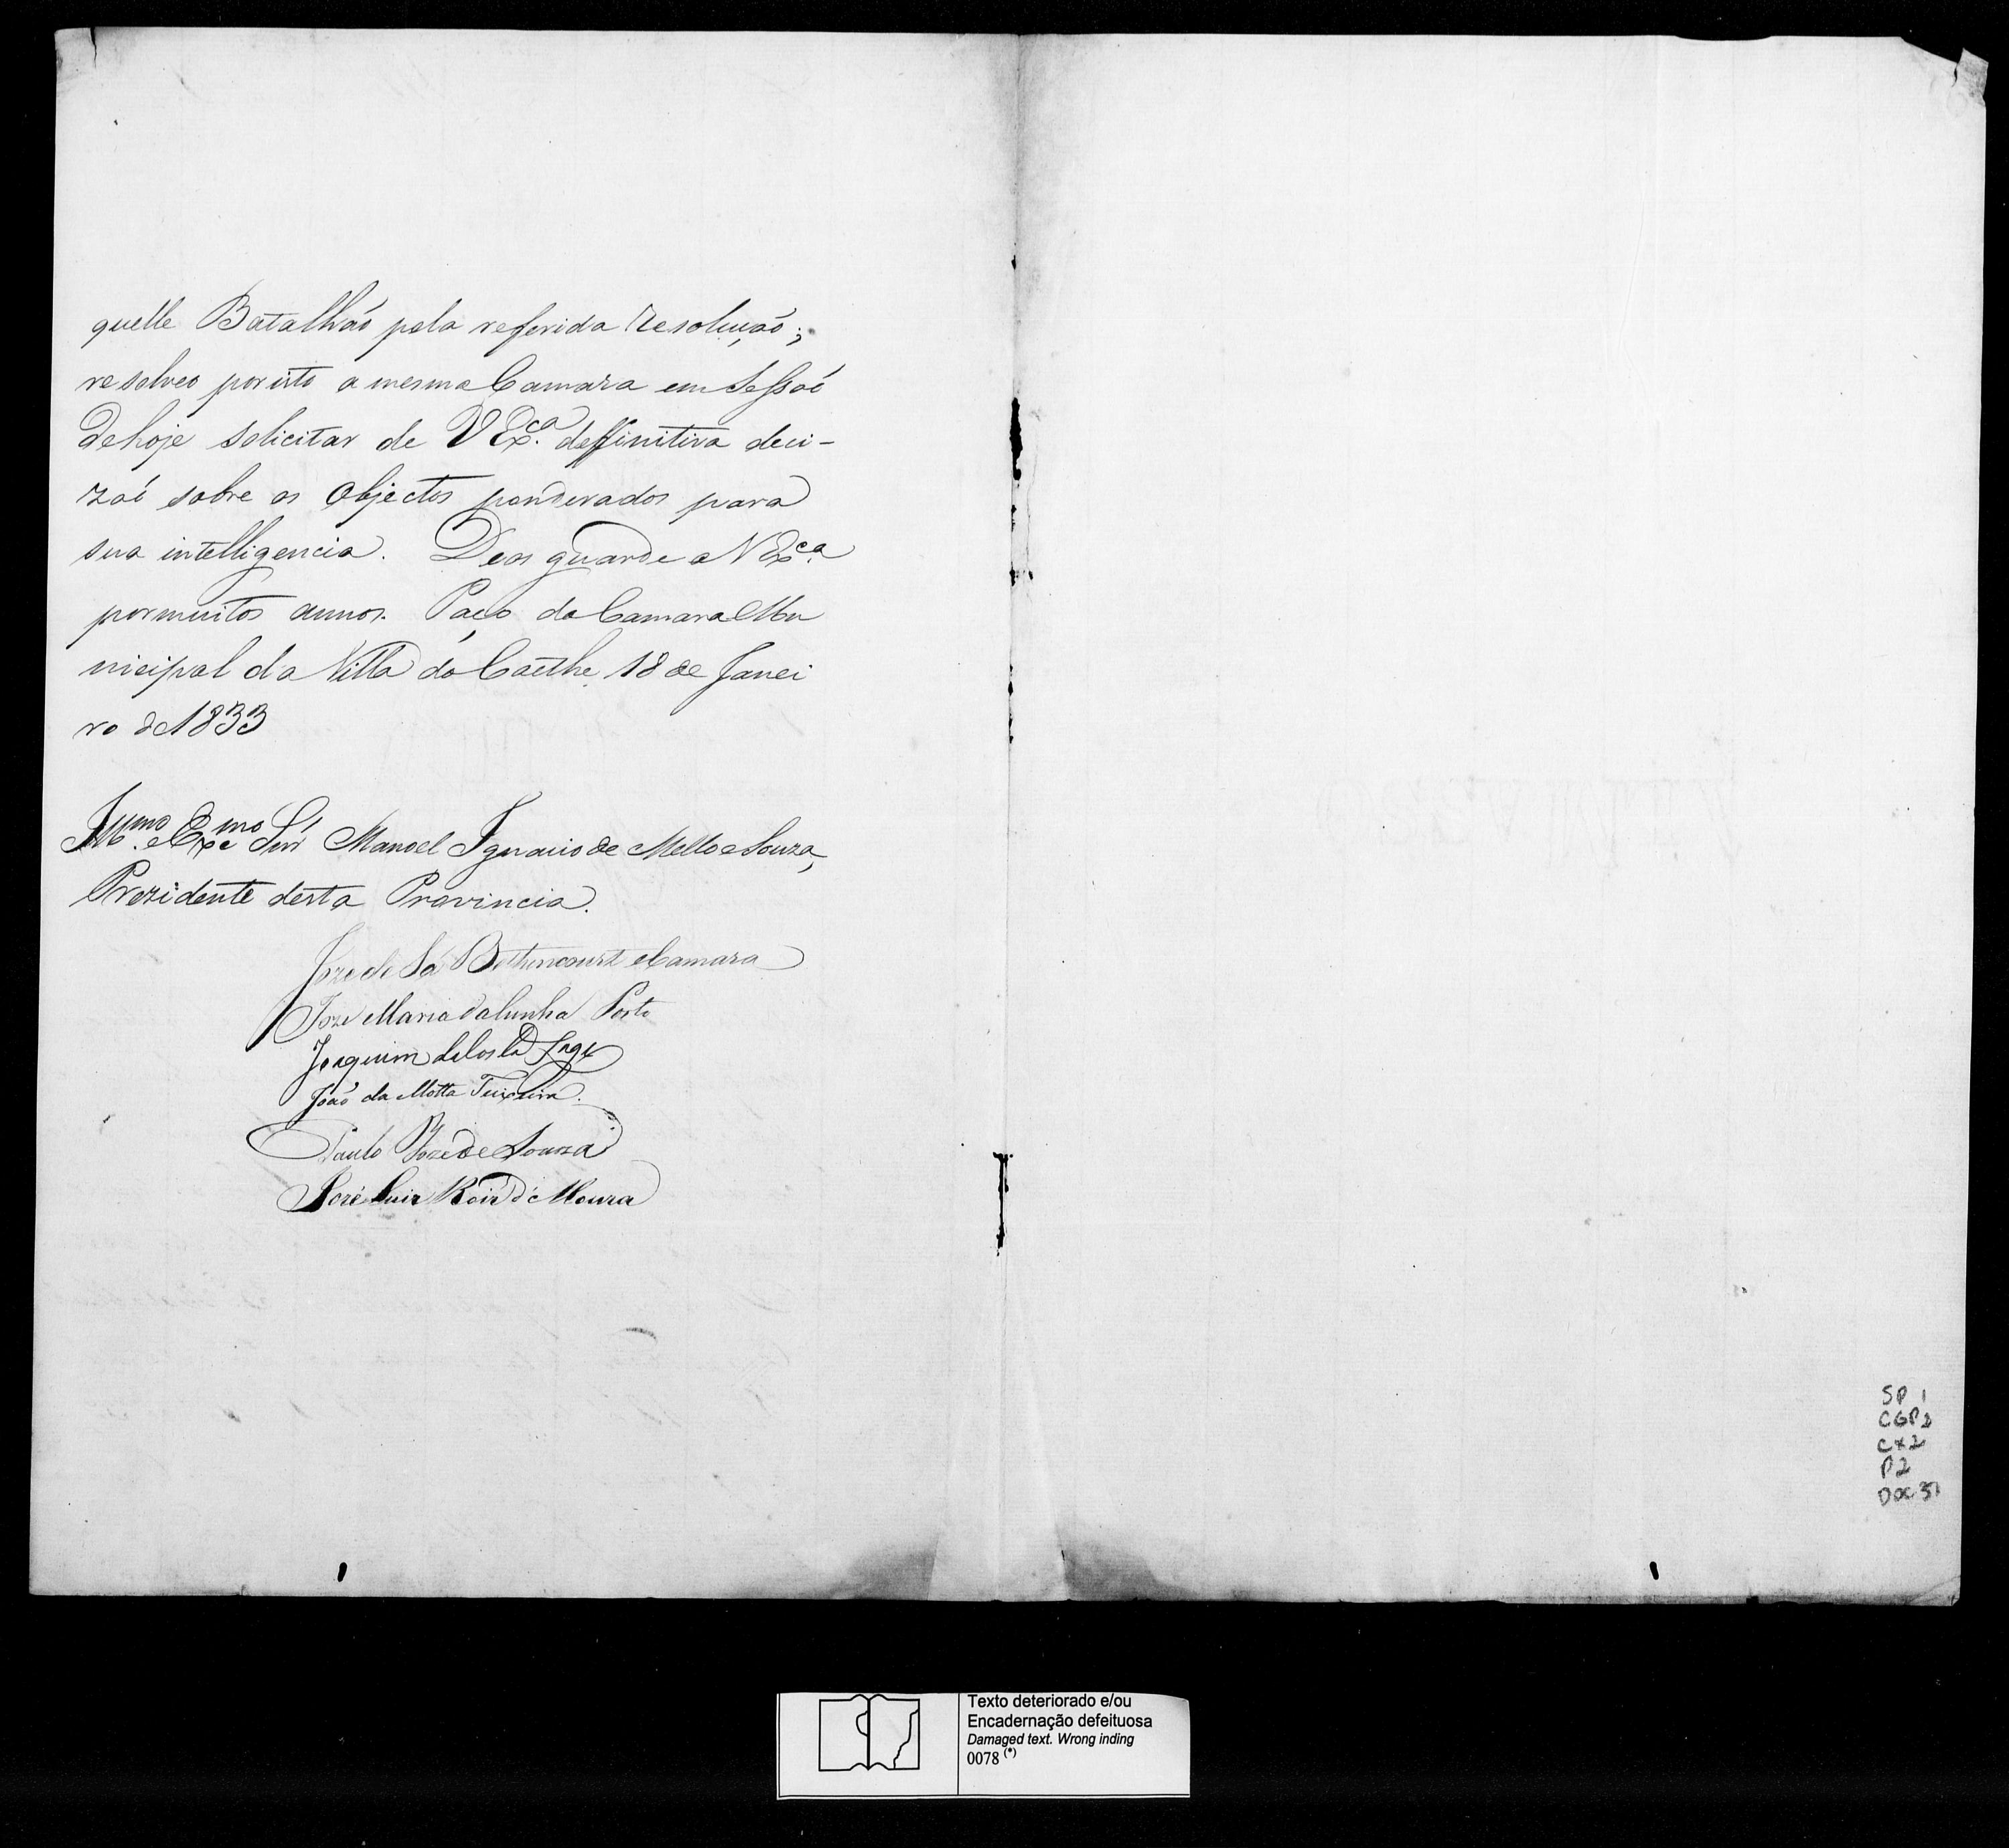 quelle Batalhaõ pela referida resoluçaõ;
resolveo por isto a mesma Camara em Sessaõ
de hoje solicitar de V Ex.ca deffinitiva deci-
zaõ sobre os Objectos ponderados para
sua intelligencia. Deos guarde a V Ex.ca
por muitos annos. Paço da Camara Mu
nicipal da Villa do Caethe 18 de Janei
ro de 1833
Ill.mo e Ex.mo Snr Manoel Ignacio de Mello e Souza,
Prezidente desta Provincia.
Joze de Sá Bethencourt e Camara
Joze Maria da Cunha Porto
Joaquim da Costa Lage
João da Motta Teixeira.
Paulo Joze de Souza
José Luiz Roiz de Moura
SP 1
CGP 2
CX 2
P 2
DOC 31
Texto deteriorado e/ou
Encadernação defeituosa
Damaged text. Wrong inding
0078 (*)